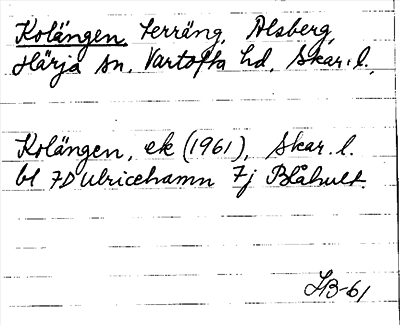 Kolängen, Terräng, Alsberg,
Härja sn. Vartofta hd. Skar. l.,
Kolängen, ek (1961), Skar. l.
bl 7D Ulricehamn 7j Blåhult.
HB-61